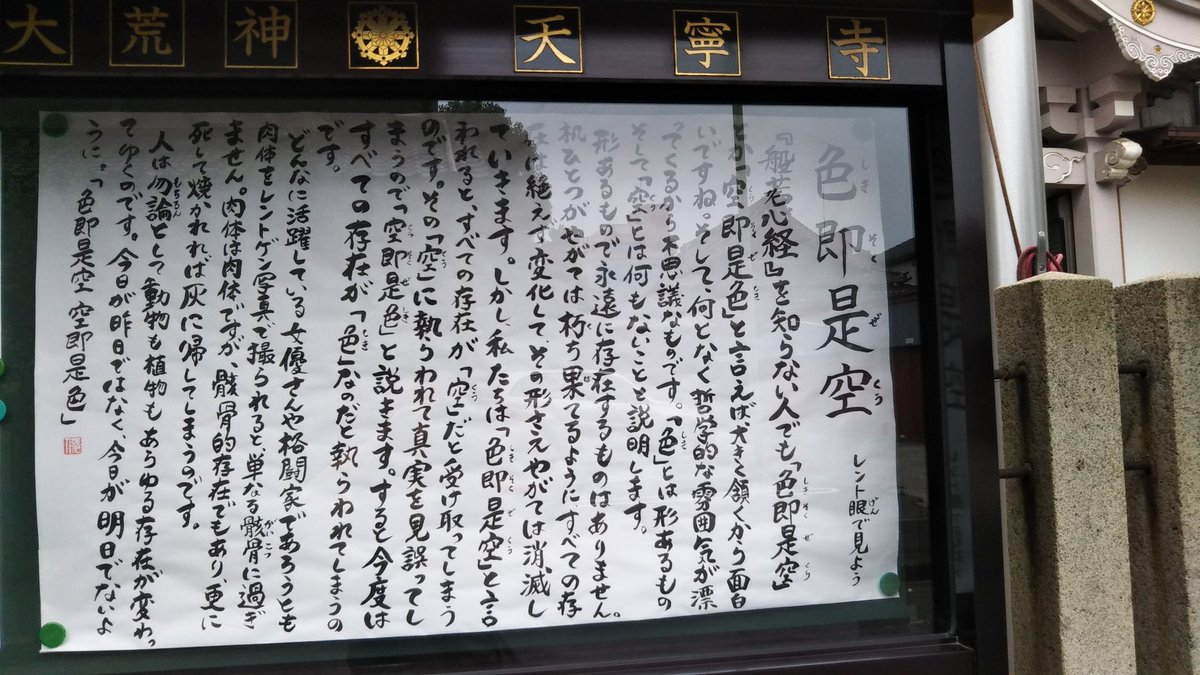 大荒神 天寧寺
色即是空
レント眼で見よう
『般若心経』を知らない人でも「色即是空」
とか「空即是色」と言えば大きく頷くから面白
いですね。そして、何となく哲学的な雰囲気が漂
ってくるから不思議なものです。「色」とは形あるもの
そして「空」とは何もないことと説明します。
形あるもので永遠に存在するものはありません。
机ひとつが、やがては朽ち果てるように、すべての存
在は絶えず変化して、その形さえやがては消滅し
ていきます。しかし、私たちは「色即是空」と言
われると、すべての存在が「空」だと受け取ってしまう
のです。その「空」に執らわれて真実を見誤ってし
まうので「空即是色」と説きます。すると今度は
すべての存在が「色」なのだと執らわれてしまうの
です。
どんなに活躍している女優さんや格闘家であろうとも
肉体をレントゲン写真で撮られると単なる骸骨に過ぎ
ません。肉体は肉体ですが、骸骨的存在でもあり、更に
死して焼かれれば灰に帰してしまうのです。
人は勿論として動物も植物もあらゆる存在が変わっ
てゆくのです。今日が昨日ではなく、今日が明日でないよ
うに。「色即是空 空即是色」